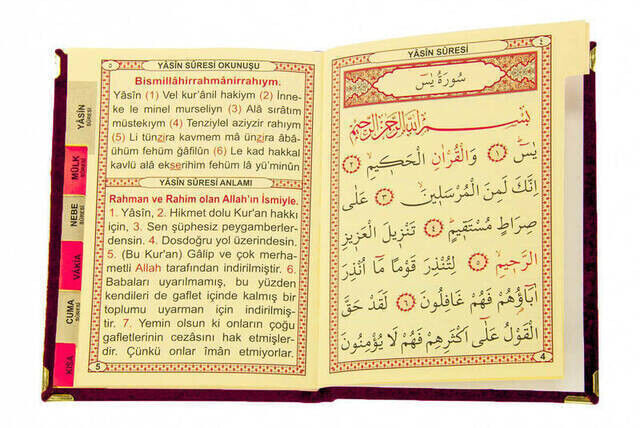 YÂSÎN SÛRESİ
٤
سُورَةُ يٰسٓ
بِسْمِ اللّٰهِ الرَّحْمٰنِ الرَّحِيمِ
يٰسٓ ﴿١﴾ وَالْقُرْاٰنِ الْحَكِيمِ ﴿٢﴾
اِنَّكَ لَمِنَ الْمُرْسَلِينَ ﴿٣﴾ عَلٰى
صِرَاطٍ مُسْتَقِيمٍ ﴿٤﴾ تَنْزِيلَ الْعَزِيزِ
الرَّحِيمِ ﴿٥﴾ لِتُنْذِرَ قَوْمًا مَٓا اُنْذِرَ
اٰبَٓاؤُ۬هُمْ فَهُمْ غَافِلُونَ ﴿٦﴾ لَقَدْ حَقَّ
الْقَوْلُ عَلٰٓى اَكْثَرِهِمْ فَهُمْ لَا يُؤْمِنُونَ
4
٥
YÂSÎN SÛRESİ OKUNUŞU
Bismillâhirrahmânirrahıym.
Yâsîn (1) Vel kur'ânil hakiym (2) İnne-
ke le minel murseliyn (3) Alâ sırâtım
müstekıym (4) Tenziylel aziyzir rahıym
(5) Li tünzira kavmem mâ ünzira âbâ-
ühüm fehüm gâfilûn (6) Le kad hakkal
kavlü alâ ekserihim fehüm lâ yü'minûn
YÂSÎN SÛRESİ ANLAMI
Rahman ve Rahim olan Allah'ın İsmiyle.
1. Yâsîn, 2. Hikmet dolu Kur'an hakkı
için, 3. Sen şüphesiz peygamberler-
densin. 4. Dosdoğru yol üzerindesin.
5. (Bu Kur'an) Gâlip ve çok merha-
metli Allah tarafından indirilmiştir. 6.
Babaları uyarılmamış, bu yüzden
kendileri de gaflet içinde kalmış bir
toplumu uyarman için indirilmiş-
tir. 7. Yemin olsun ki onların çoğu
gafletlerinin cezasını hak etmişler-
dir. Çünkü onlar îmân etmiyorlar.
5
YÂSÎN
SÛRESİ
MÜLK
SÛRESİ
NEBE
SÛRESİ
VÂKIA
CUMA
SÛRESİ
KISA